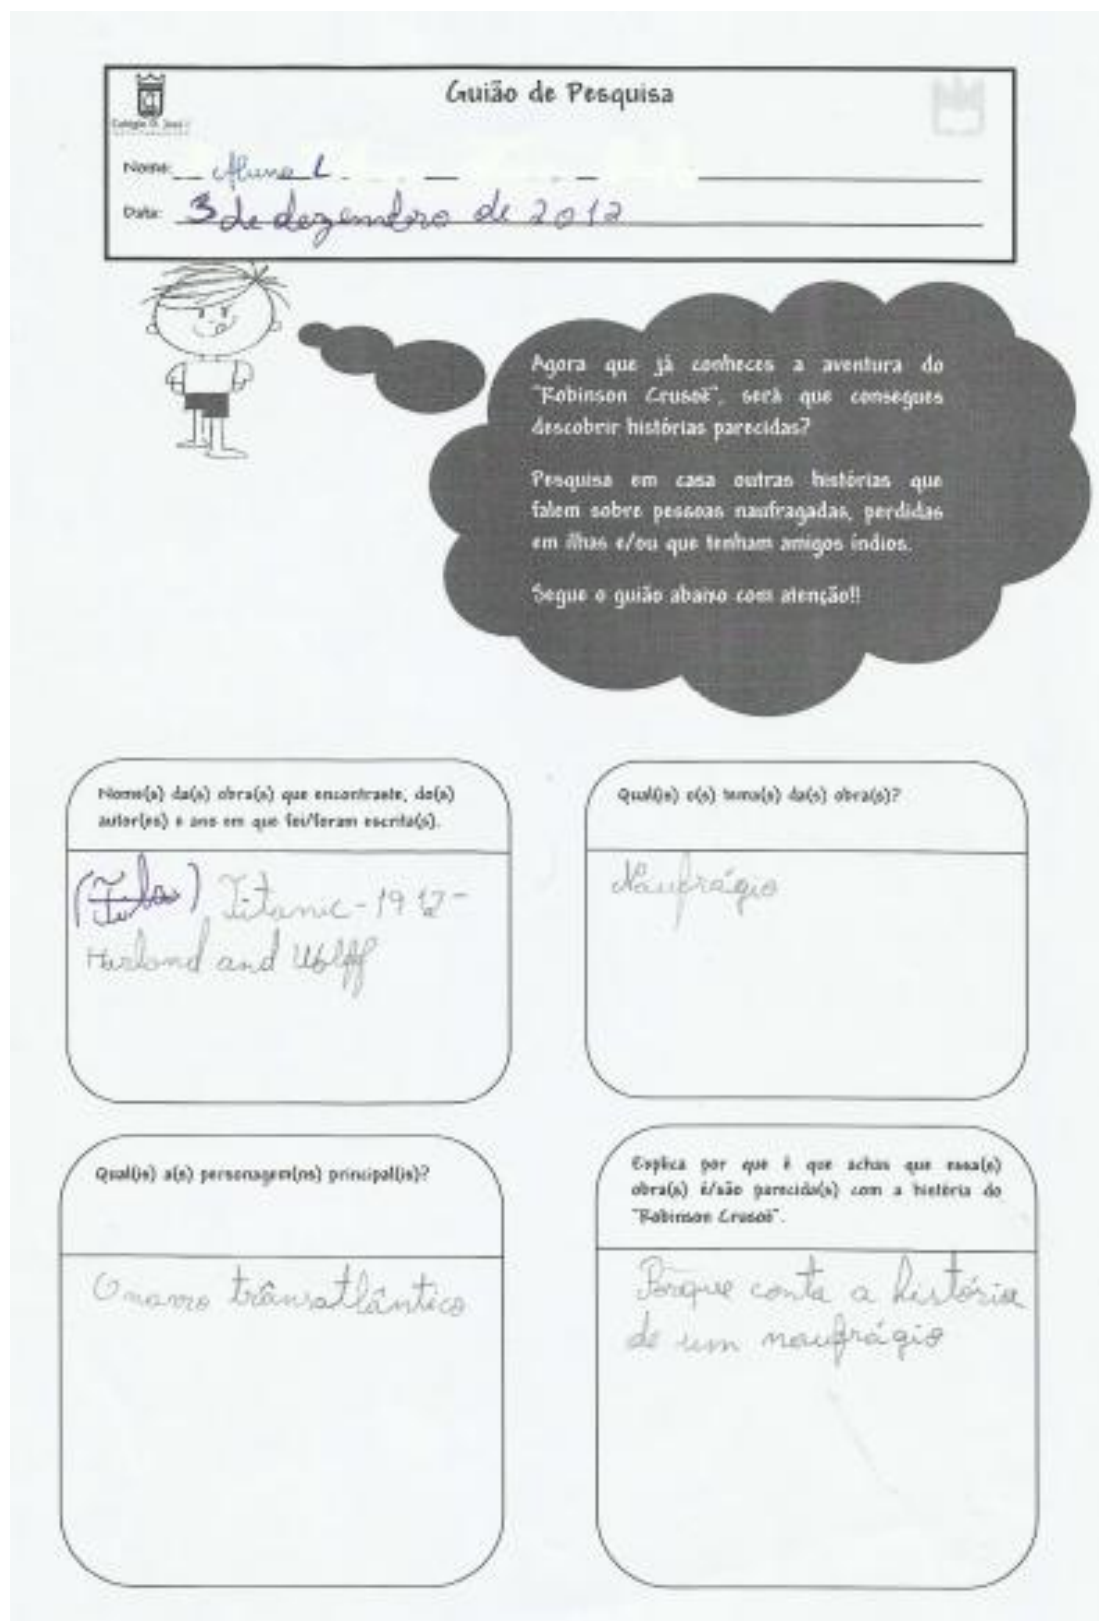 Guião de Pesquisa
Colégio D. José I
Nome: Aluno L
Data: 3 de dezembro de 2012
Agora que já conheces a aventura do
"Robinson Crusoë", será que consegues
descobrir histórias parecidas?
Pesquisa em casa outras histórias que
falem sobre pessoas naufragadas, perdidas
em ilhas e/ou que tenham amigos índios.
Segue o guião abaixo com atenção!!
Nome(s) da(s) obra(s) que encontraste, do(s)
autor(es) e ano em que foi/foram escrita(s).
Titanic - 1912 -
Harland and Wolff
Qual(is) o(s) tema(s) da(s) obra(s)?
Naufrágio
Qual(is) a(s) personagem(ns) principal(is)?
O navio trânsatlântico
Explica por que é que achas que essa(s)
obra(s) é/são parecida(s) com a história do
"Robinson Crusoë".
Porque conta a história
de um naufrágio